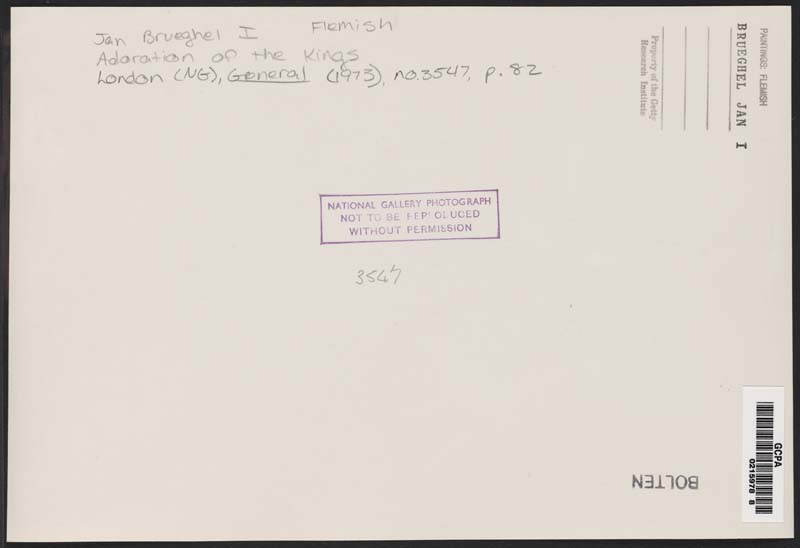 Jan Brueghel I Flemish
Adoration of the Kings
London (NG), General (1973), no.3547, p. 82
PAINTINGS: FLEMISH
BRUEGHEL JAN I
Property of the Getty
Research Institute
NATIONAL GALLERY PHOTOGRAPH
NOT TO BE REP OLUCED
WITHOUT PERMISSION
3547
GCPA
0215978 8
BOLTEN